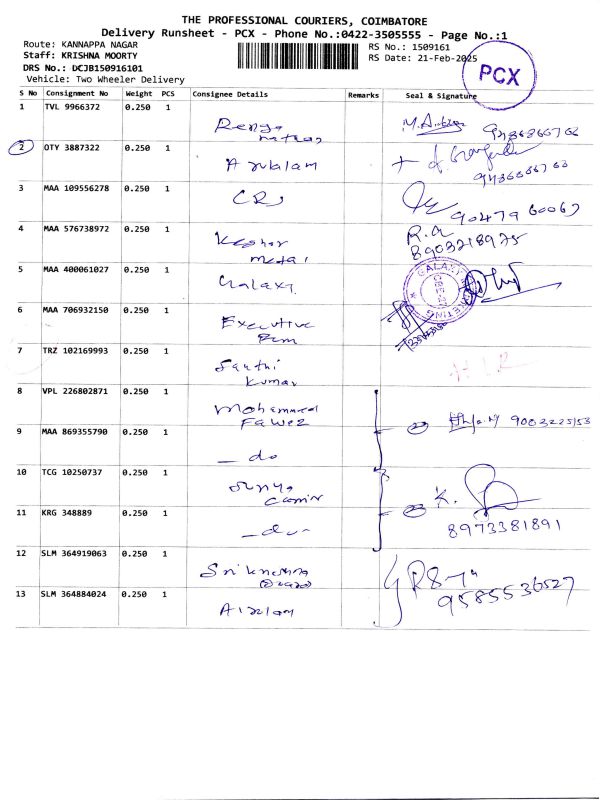 THE PROFESSIONAL COURIERS, COIMBATORE
Delivery Runsheet - PCX - Phone No.:0422-3505555 - Page No.:1
Route: KANNAPPA NAGAR
RS No.: 1509161
Staff: KRISHNA MOORTY
RS Date: 21-Feb-2025
DRS No.: DCJB150916101
PCX
Vehicle: Two Wheeler Delivery
S No Consignment No Weight PCS Consignee Details Remarks Seal & Signature
1 TVL 9966372 0.250 1
2 OTY 3887322 0.250 1
3 MAA 109556278 0.250 1 CRS
4 MAA 576738972 0.250 1 Keshar
Metal 8903218975
5 MAA 400061027 0.250 1 Galaxy
GALAXY MARKETING
6 MAA 706932150 0.250 1 Executive
7 TRZ 102169993 0.250 1 Santhi
Kumar
8 VPL 226802871 0.250 1 Mohammed
Fawez 9003225153
9 MAA 869355790 0.250 1 _do
10 TCG 10250737 0.250 1 K.
11 KRG 348889 0.250 1 _do_ 8973381891
12 SLM 364919063 0.250 1
13 SLM 364884024 0.250 1 9585536527